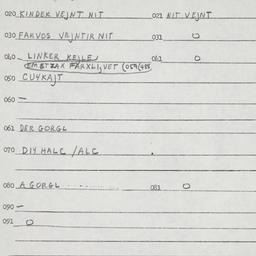 020 KINDER VEJNT NIT 021 NIT VEJNT
030 FARVOS VEJNTIR NIT 031 O
040 LINKER 041 O
050 CUVKAJT
060 —
061 DER GORGL
070 DIY HALC / ALC
080 A GORGL 081 O
090 —
091 O